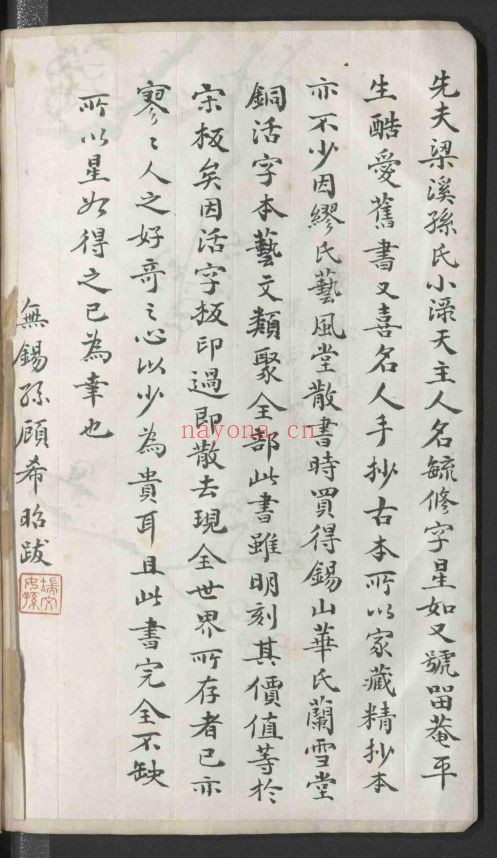 先夫梁溪孫氏小渌天主人名毓修字星如又號畱菴平
生酷愛舊書又喜名人手抄古本所以家藏精抄本
亦不少因繆氏藝風堂散書時買得錫山華氏蘭雪堂
銅活字本藝文類聚全部此書雖明刻其價值等於
宋板矣因活字板印過即散去現全世界所存者已亦
寥〻人之好奇之心以少為貴耳且此書完全不缺
所以星如得之已為幸也
無錫孫顧希昭跋
nayona.cn